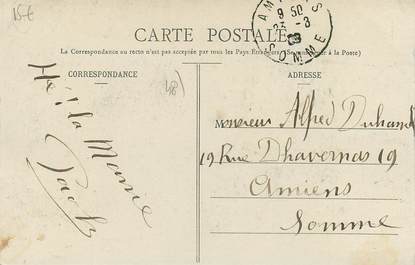 15€
CARTE POSTALE
La Correspondance au recto n'est pas acceptée par tous les Pays Étrangers (Se renseigner à la Poste)
CORRESPONDANCE
ADRESSE
AMIENS
SOMME
Monsieur Alfred Duhamel
19 Rue Dhavernas 19
Amiens
Somme